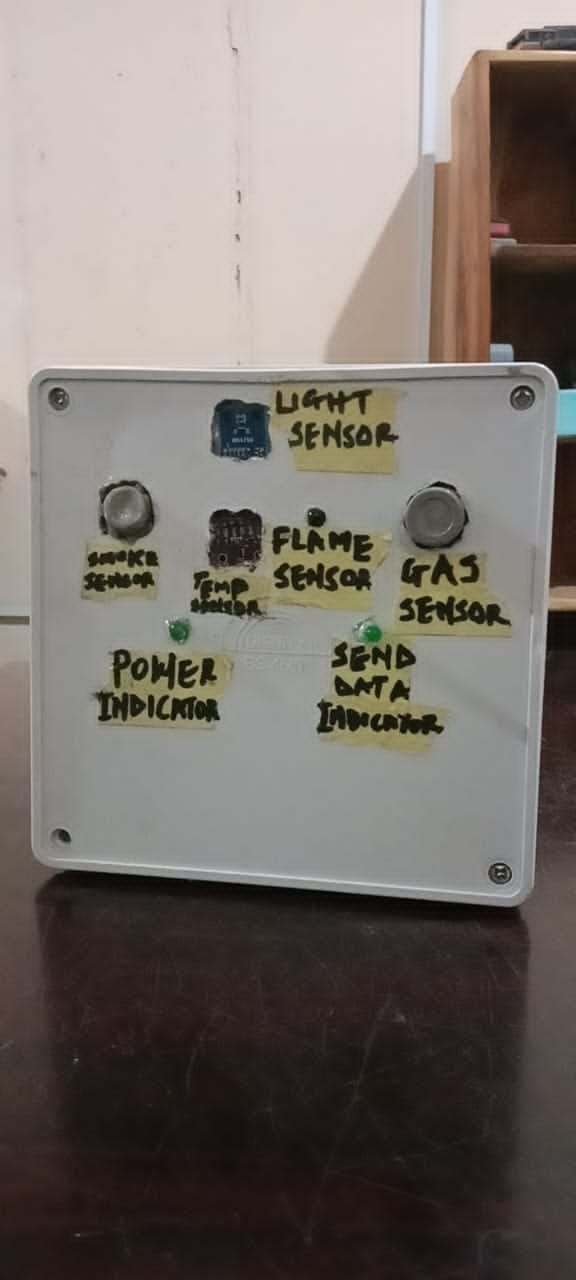 LIGHT
SENSOR
SMOKE
SENSOR
TEMP
SENSOR
FLAME
SENSOR
GAS
SENSOR
POWER
INDICATOR
SEND
DATA
INDICATOR